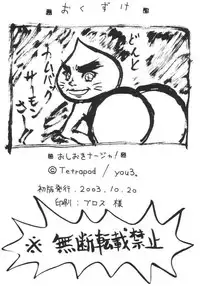 おくずけ
どんと
カムバック
サーモン
さー!!
おしおきナージャ!
© Tetrapod / you3。
初版発行. 2003.10.20
印刷:アロス 様
※ 無断転載禁止